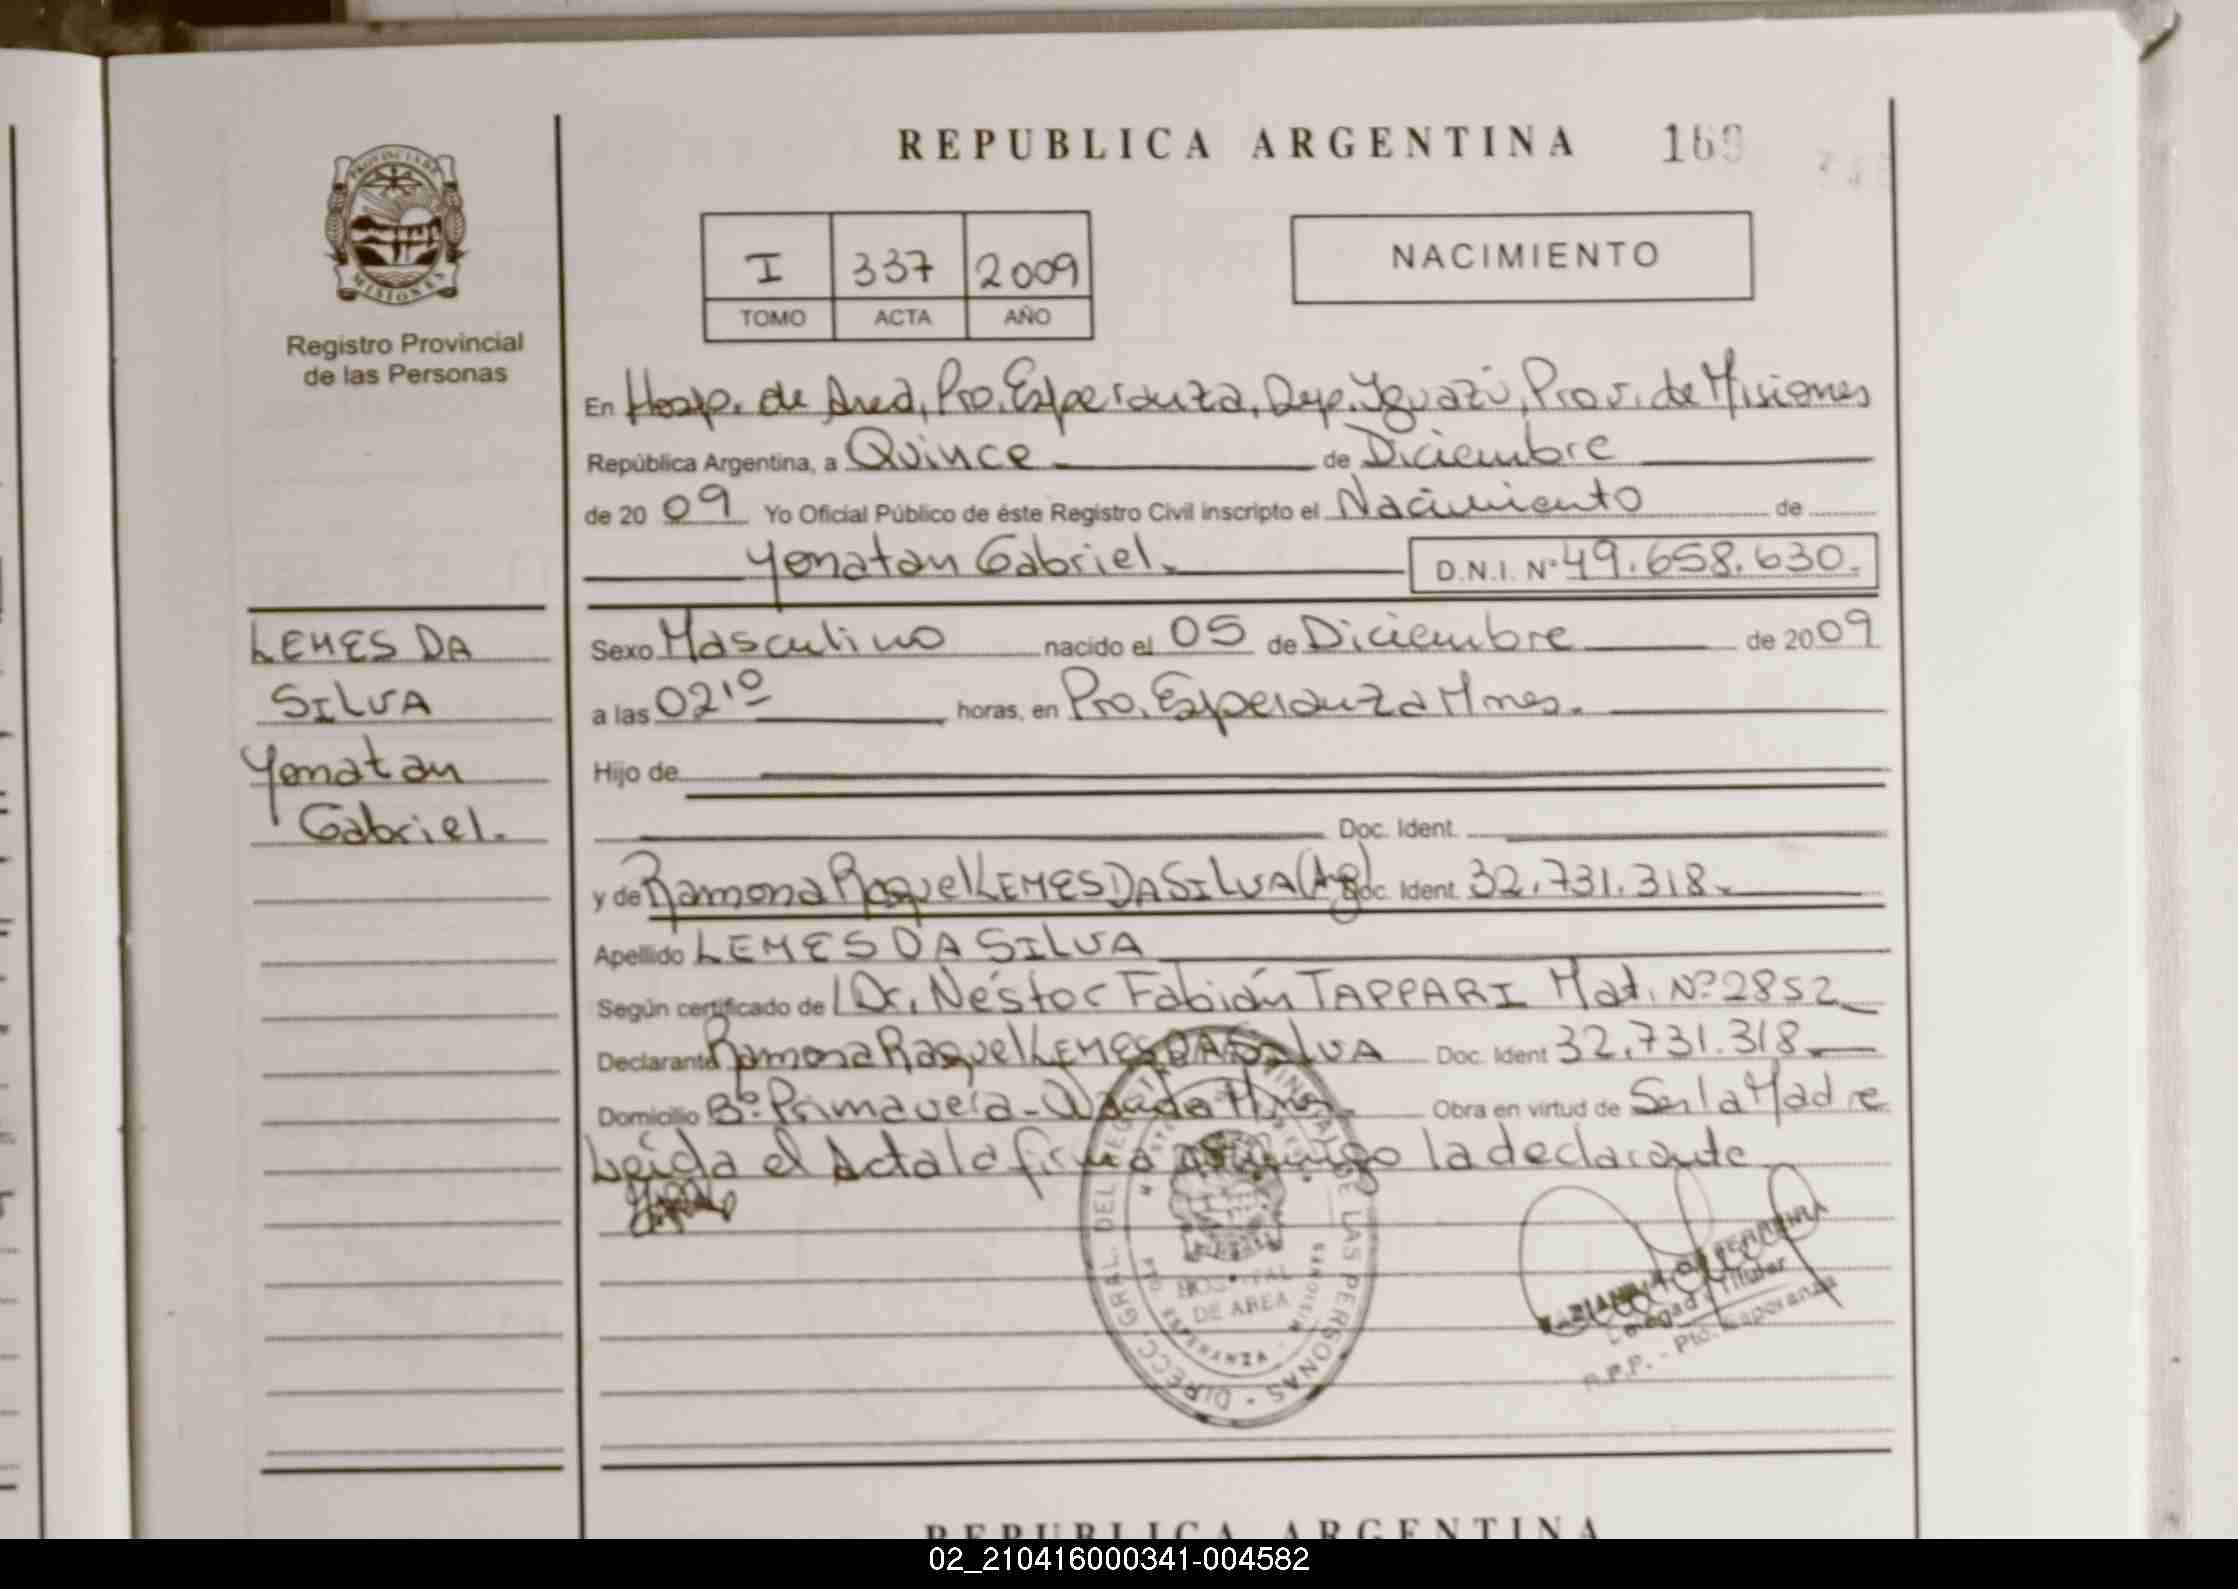 REPUBLICA ARGENTINA 169
PROVINCIA DE
MISIONES
Registro Provincial
de las Personas
I 337 2009
TOMO ACTA AÑO
NACIMIENTO
En Hosp. de Area, Pto. Esperanza, Dep. Iguazú, Prov. de Misiones
República Argentina, a Quince de Diciembre
de 2009 Yo Oficial Público de éste Registro Civil inscripto el Nacimiento de
Yonatan Gabriel. D.N.I. Nº 49.658.630.
LEMES DA
SILVA
Yonatan
Gabriel.
Sexo Masculino nacido el 05 de Diciembre de 2009
a las 02,10 horas, en Pto. Esperanza Mnes.
Hijo de
Doc. Ident.
y de Ramona Raquel LEMES DA SILVA (Arg) Doc. Ident. 32.731.318.
Apellido LEMES DA SILVA
Según certificado de Dr. Néstor Fabián TAPPARI Mat. Nº 2852
Declarante Ramona Raquel LEMES DA SILVA Doc. Ident 32.731.318.
Domicilio Bº. Primavera - Wanda Mnes. Obra en virtud de Ser la Madre
Leída el Acta la firma conmigo la declarante
DIRECC. GRAL. DEL REGISTRO PROVINCIAL DE LAS PERSONAS
HOSPITAL
DE AREA
Delegada Titular
R.P.P. - Pto. Esperanza
REPUBLICA ARGENTINA
02_210416000341-004582